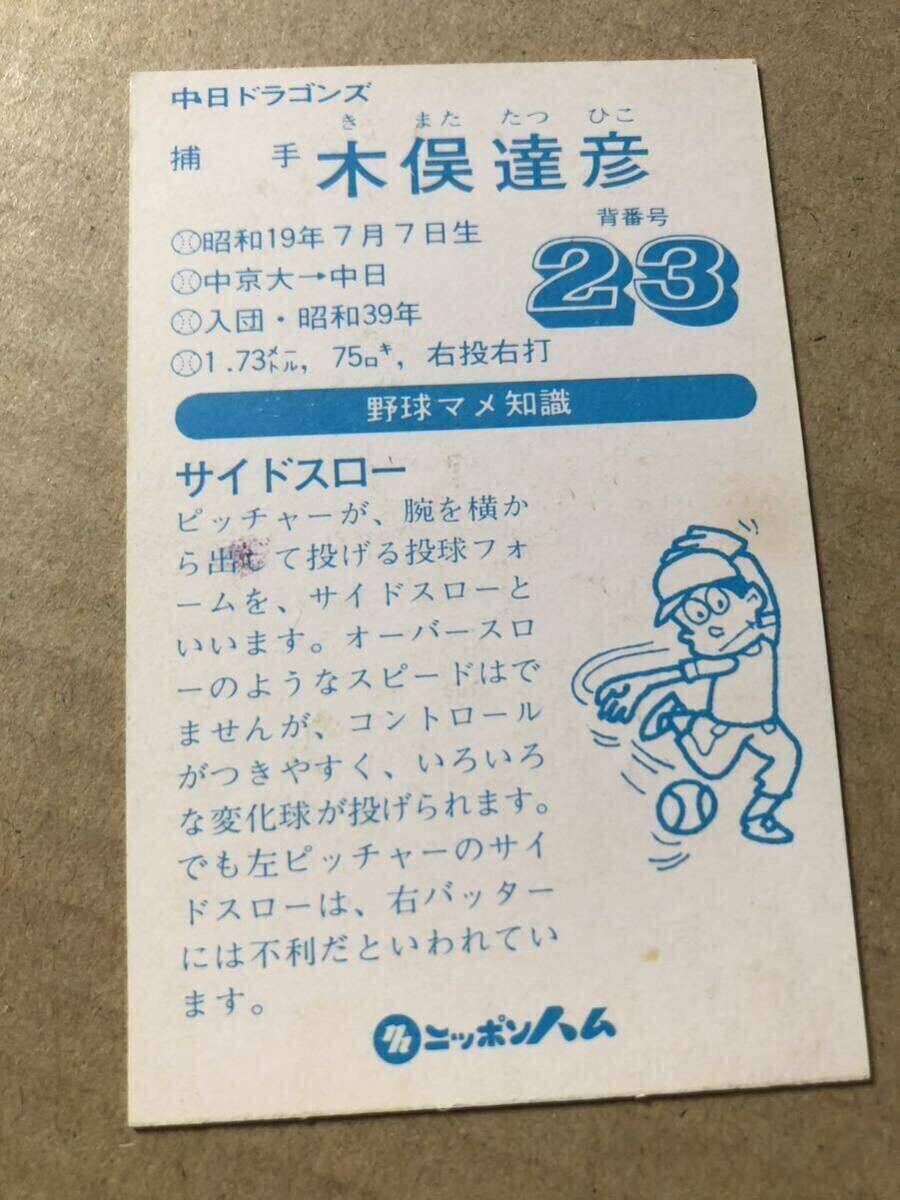 中日ドラゴンズ
き また たつ ひこ
捕手 木俣達彦
背番号
23
昭和19年7月7日生
中京大→中日
入団・昭和39年
1.73メートル，75キロ，右投右打
野球マメ知識
サイドスロー
ピッチャーが、腕を横か
ら出して投げる投球フォ
ームを、サイドスローと
いいます。オーバースロ
ーのようなスピードはで
ませんが、コントロール
がつきやすく、いろいろ
な変化球が投げられます。
でも左ピッチャーのサイ
ドスローは、右バッター
には不利だといわれてい
ます。
ニッポンハム